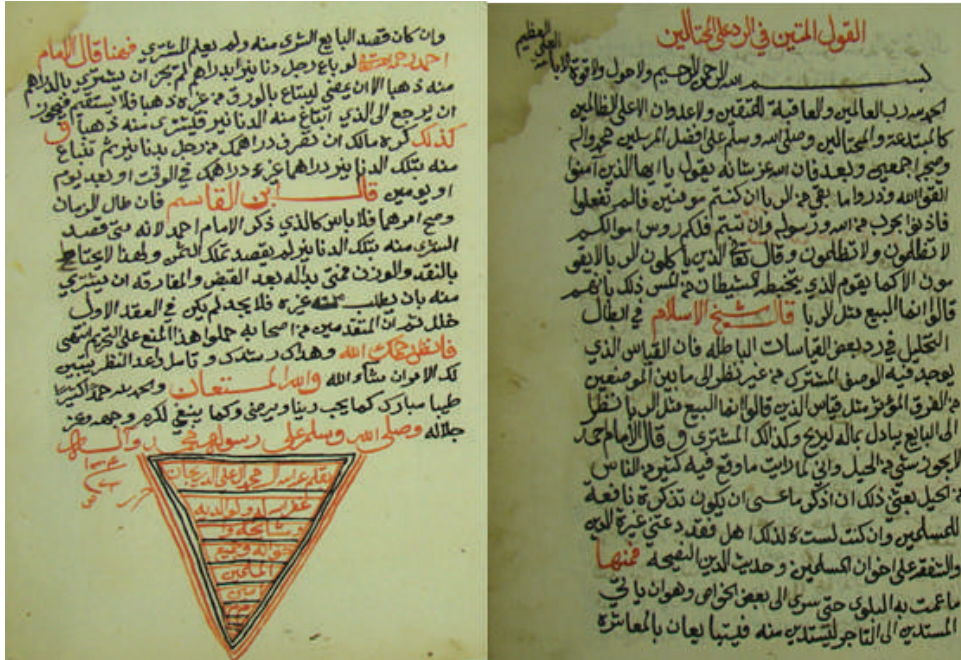 القول المتين في الرد على المحتالين
بسم الله الرحمن الرحيم ولا حول ولا قوة الا بالله
العلي العظيم
الحمد لله رب العالمين والعاقبة للمتقين ولا عدوان الا على الظالمين
كالمبتدعة والمحتالين وصلى الله وسلم على افضل المرسلين محمد واله
وصحبه اجمعين وبعد فان الله عز شانه يقول يا ايها الذين امنوا
اتقوا الله وذروا ما بقي من الربا ان كنتم مومنين فالم تفعلوا
فاذنوا بحرب من الله ورسوله وان تبتم فلكم روس اموالكم
لا تظلمون ولا تظلمون وقال تعا الذين ياكلون الربا لا يقو
مون الا كما يقوم الذي يتخبطه الشيطان من المس ذلك بانهم
قالوا انما البيع مثل الربا قال شيخ الاسلام في ابطال
التحليل في رد بعض القياسات الباطله فان القياس الذي
يوجد فيه الوصف المشترك من غير نظر الى ما بين الموضعين
من الفرق المؤثر مثل قياس الذين قالوا انما البيع مثل الربا نظر
الى البايع يبادل بماله ليربح وكذالك المشتري وقال الامام احمد
لا يجوز شي من الحيل واني لما رايت ما وقع فيه كثير من الناس
من الحيل بعثني ذلك ان اذكر ما عسى ان يكون تذكرة نافعة
للمسلمين وان كنت لست لذلك اهل فقد دعتني غيرة الدين
والشفقه على اخوان المسلمين وحديث الدين النصيحه فمنها
ما عمت به البلوى حتى سرى الى بعض الخواص وهو ان ياتي
المستدين الى التاجر ليستدين منه فيتبايعان بالمعاشرة
وان كان قصد البايع الشرى منه ولم يعلم المشتري فهنا قال الامام
احمد رحمه الله لو باع رجل دنانير بدراهم لم يجز ان يشتري بالدراهم
منه ذهبا الا ان يمضي ليبتاع بالورق من غيره ذهبا فلا يستقيم فيجوز
ان يرجع الى الذي ابتاع منه الدنانير فليشتري منه ذهبا و
كذلك كره مالك ان تصرف دراهمك من رجل بدنانير ثم تبتاع
منه بتلك الدنانير دراهما غير دراهمك في الوقت او بعد يوم
او يومين قال ابن القاسم فان طال الزمان
وصح امرهما فلا باس كالذي ذكر الامام احمد لانه متى قصد
المشري منه بتلك الدنانير لم يقصد تملك الثمن ولهذا لا يحتاط
بالنقد والوزن فمتى بدا له بعد القبض والمفارقه ان يشتري
منه بان يطلب من غيره فلا يجد لم يكن في العقد الاول
خلل ثم ان المتقدمين من اصحابه حملوا هذا المنع على التحريم انتهى
فانظر رحمك الله وهداك رشدك وتامل واعد النظر يتبين
لك الامر ان شاء الله والله المستعان والحمد لله حمدا كثيرا
طيبا مبارك كما يحب ربنا ويرضى وكما ينبغي لكرم وجهه وعز
جلاله وصلى الله وسلم على رسوله محمد واله
بقلم عبدالله محمد العلي الدريجان
غفر الله له ولوالديه
ومشايخه و
اخوانه وجميع
المسلمين
امين